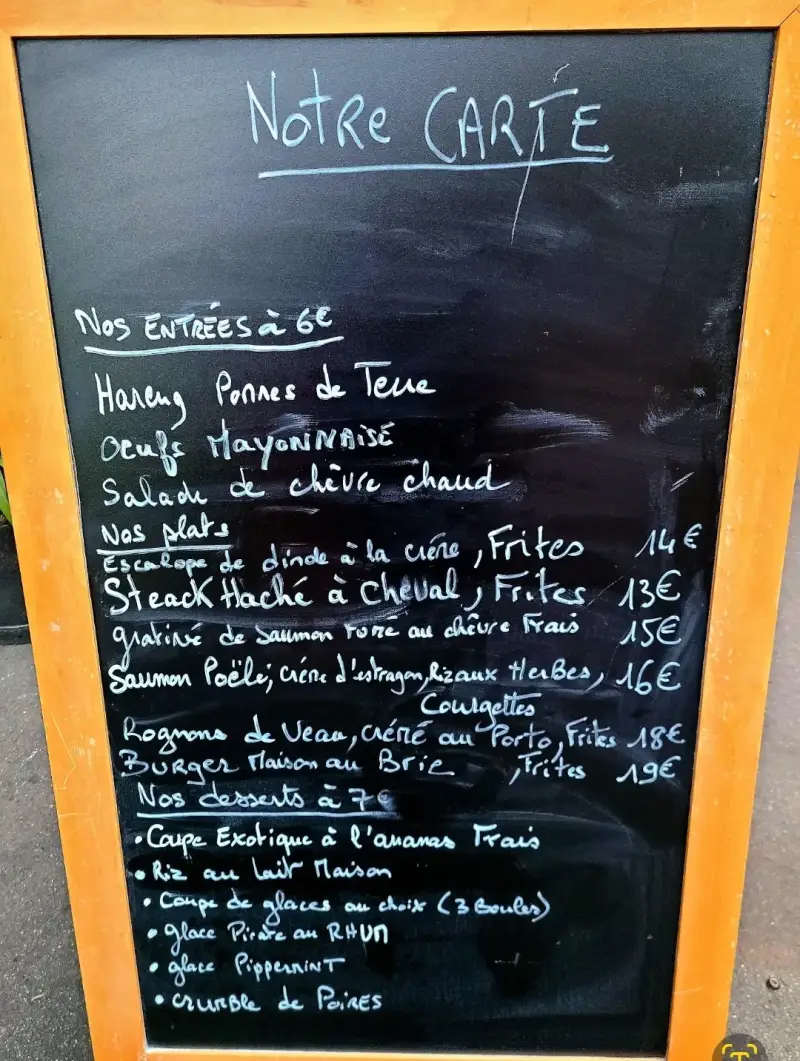 Notre CARTE
Nos ENTRÉES à 6€
Hareng Pommes de Terre
Oeufs MAYONNAISE
Salade de chèvre chaud
Nos plats
Escalope de dinde à la crème, Frites 14€
Steack Haché à Cheval, Frites 13€
gratiné de Saumon Fumé au chèvre Frais 15€
Saumon Poëlé, crème d'estragon, Riz aux HerBes, 16€
Courgettes
Rognons de Veau, crème au Porto, Frites 18€
BURGER Maison au Brie, Frites 19€
Nos desserts à 7€
• Coupe Exotique à l'ananas Frais
• Riz au lait Maison
• Coupe de glaces au choix (3 Boules)
• glace Pirate au RHUM
• glace PippermINT
• CRUMBle de PoIRES